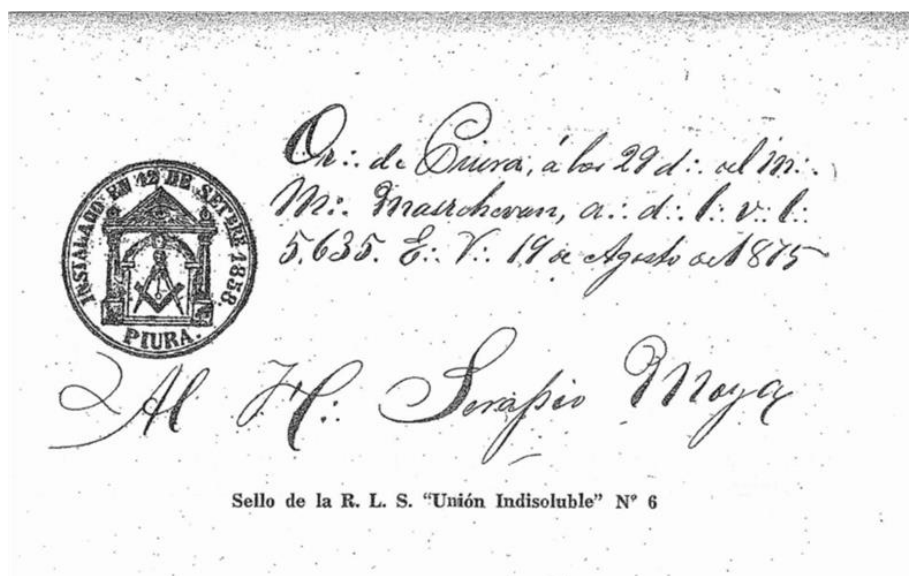 INSTALADO EN 12 DE SETBRE 1858.
PIURA.
Or∴ de Piura, á los 29 d∴ del m∴
M∴ Marchevan, a∴ d∴ l∴ v∴ l∴
5,635. E∴ V∴ 19 de Agosto de 1875
Al H∴ Serapio Moya
Sello de la R. L. S. “Unión Indisoluble” Nº 6